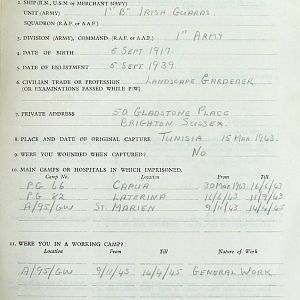 2. SHIP (R.N., U.S.N. or MERCHANT NAVY)
UNIT (ARMY) 1st Bn IRISH GUARDS
SQUADRON (R.A.F. or A.A.F.)
3. DIVISION (ARMY), COMMAND (R.A.F. or A.A.F.) 1st ARMY
4. DATE OF BIRTH 5 SEPT 1917.
5. DATE OF ENLISTMENT 5 SEPT 1939.
6. CIVILIAN TRADE OR PROFESSION LANDSCAPE GARDENER
(OR EXAMINATIONS PASSED WHILE P/W)
7. PRIVATE ADDRESS 50 GLADSTONE PLACE
BRIGHTON SUSSEX.
8. PLACE AND DATE OF ORIGINAL CAPTURE TUNISIA 15 MAR 1943.
9. WERE YOU WOUNDED WHEN CAPTURED? NO
10. MAIN CAMPS OR HOSPITALS IN WHICH IMPRISONED.
Camp No. Location From Till
P.G. 66 CAPUA 30 MAR 1943 16/6/43
P.G. 82 LATERINA 11/9/43
A/95/GW ST. MARIEN 9/11/43 14/4/45
11. WERE YOU IN A WORKING CAMP?
Location From Till Nature of Work
A/95/GW 9/11/43 14/4/45 GENERAL WORK